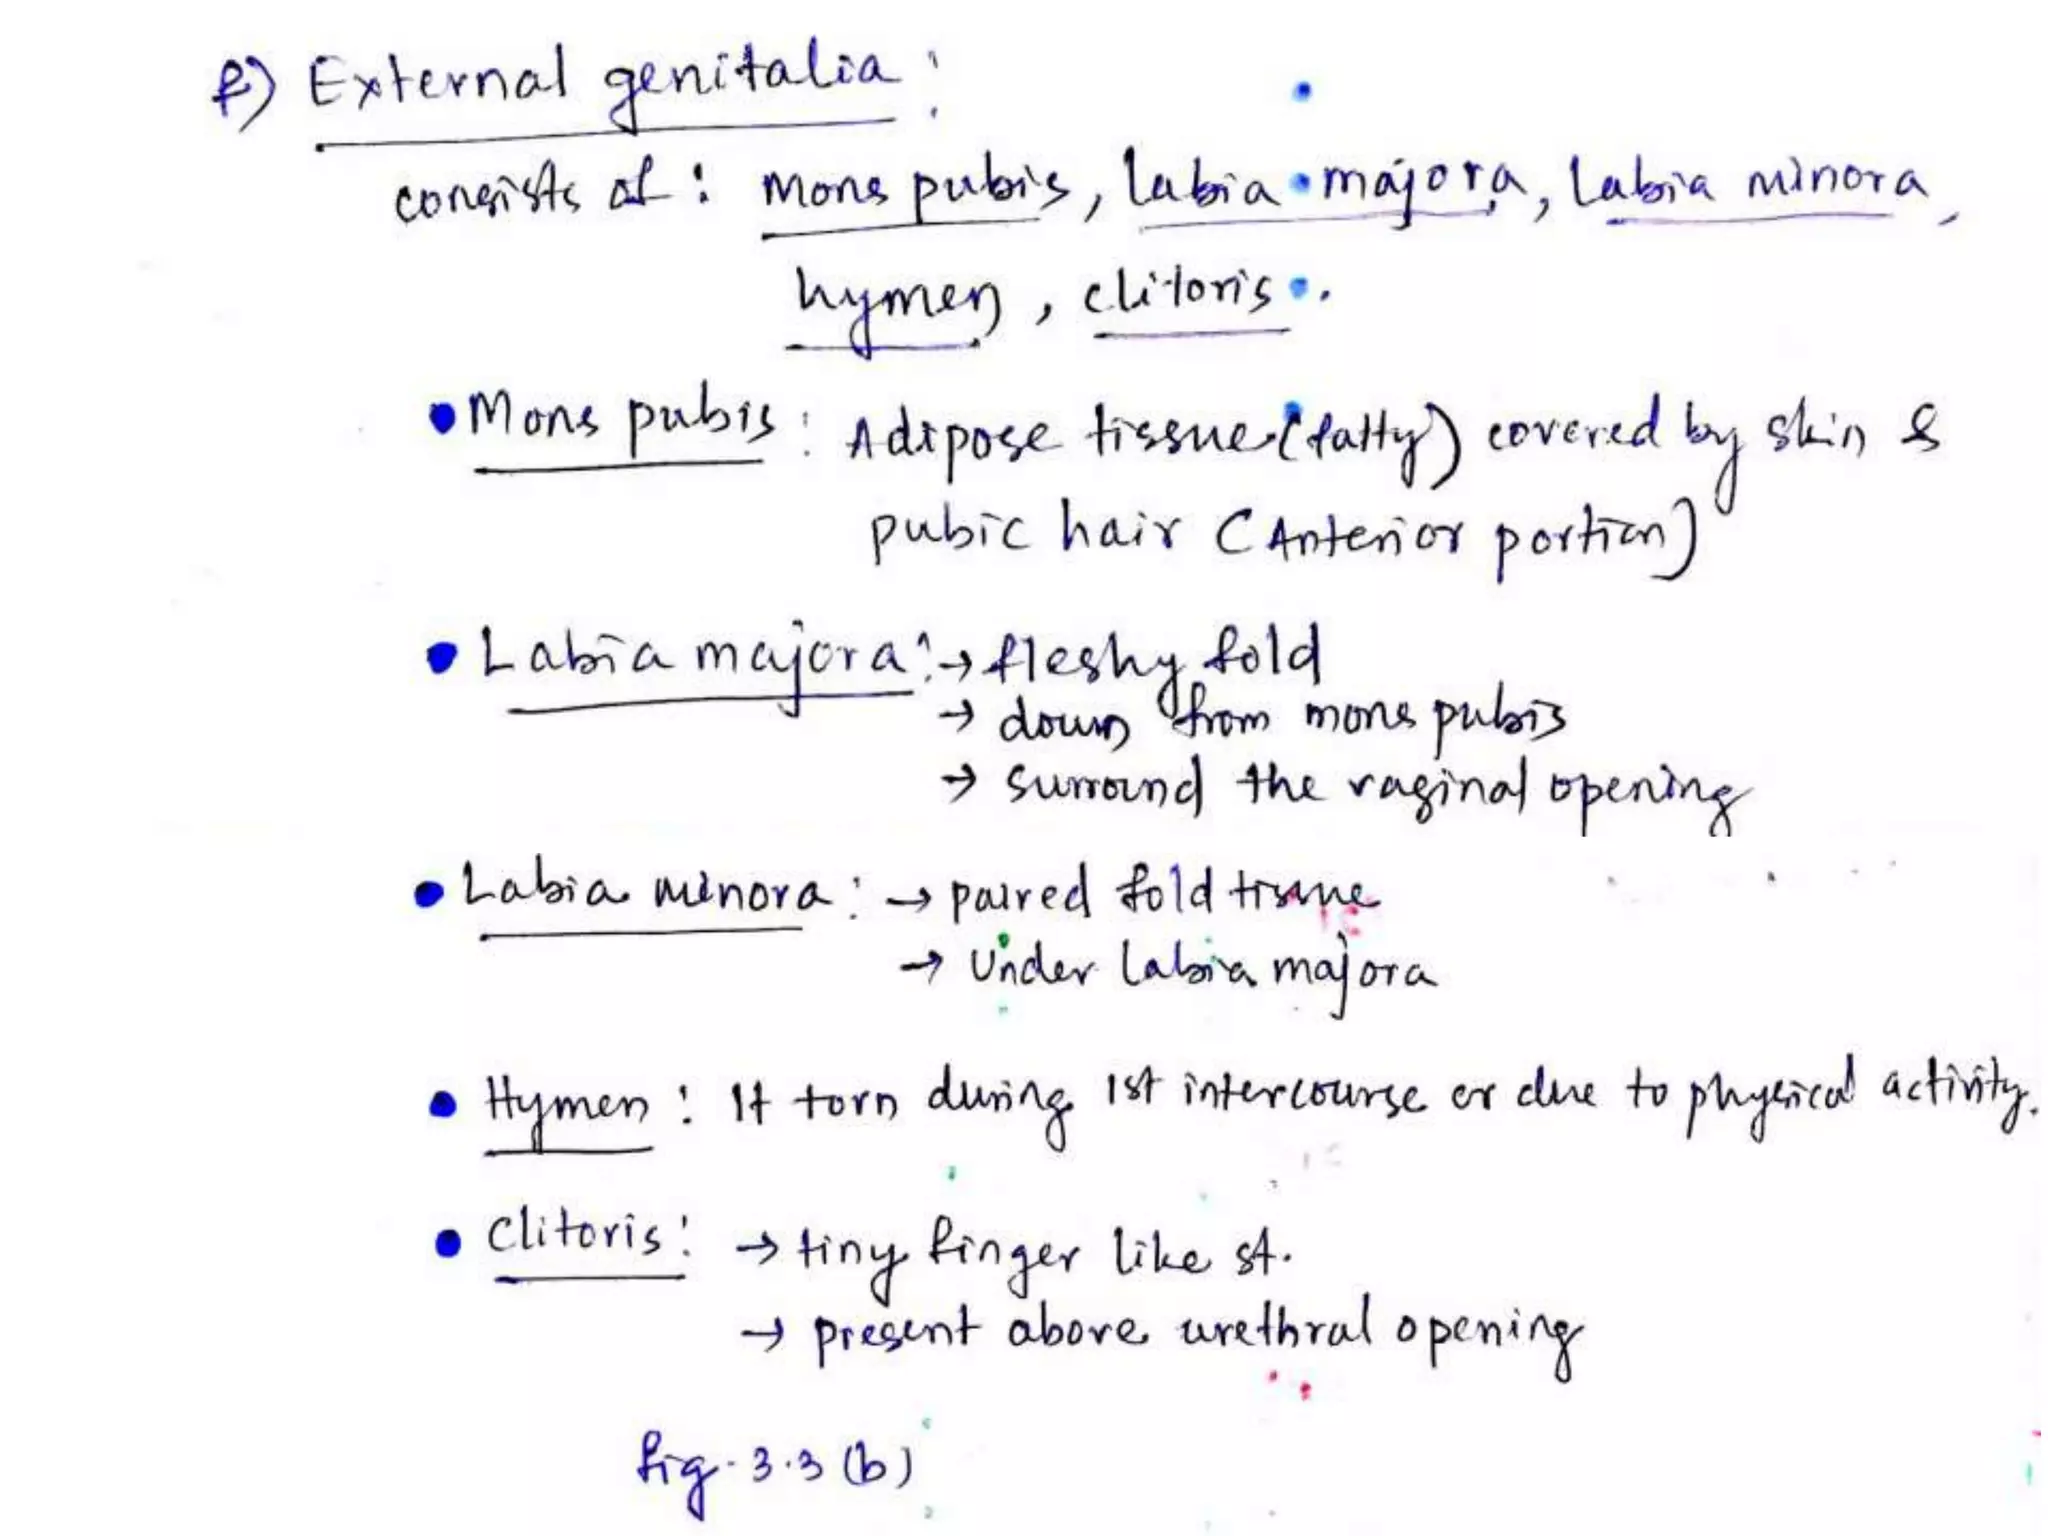 f) External genitalia :
consists of : mons pubis, labia majora, labia minora,
hymen, clitoris.
• Mons pubis : Adipose tissue (fatty) covered by skin &
pubic hair (Anterior portion)
• Labia majora : → fleshy fold
→ down from mons pubis
→ surround the vaginal opening
• Labia minora : → paired fold tissue
→ Under labia majora
• Hymen : It torn during 1st intercourse or due to physical activity.
• Clitoris : → tiny finger like st.
→ present above urethral opening
fig. 3.3 (b)